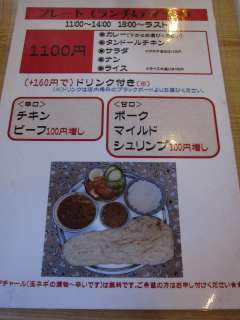 プレート(ランチ&ディナー)
11:00~14:00 18:00~ラスト
1100円
・カレー
・タンドールチキン
・サラダ
・ナン
・ライス
(+160円で)ドリンク付き(※)
(※)ドリンクは店内掲示のブラックボードよりお選びください。
<辛口>
チキン
ビーフ100円増し
<甘口>
ポーク
マイルド
シュリンプ100円増し
アチャール(玉ネギの漬物~辛いです)は無料です。ご希望の方はお申し付けください★★